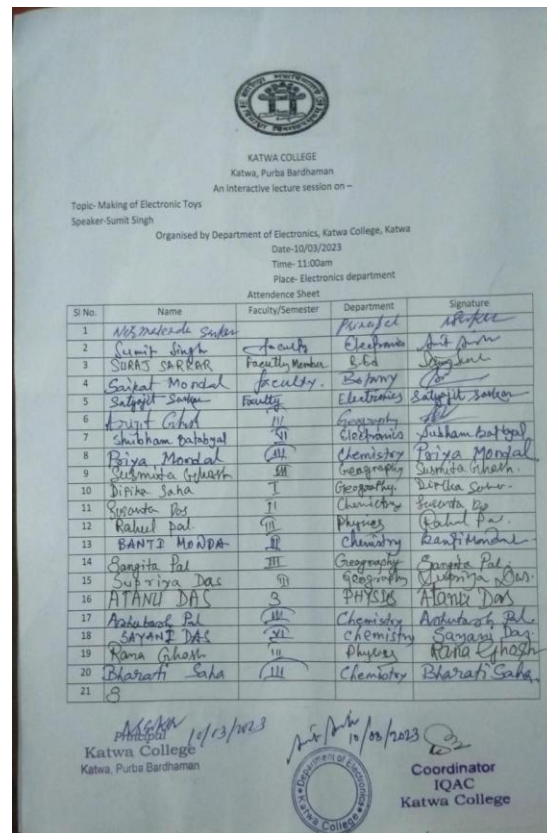 KATWA COLLEGE
Katwa, Purba Bardhaman
An interactive lecture session on –
Topic- Making of Electronic Toys
Speaker-Sumit Singh
Organised by Department of Electronics, Katwa College, Katwa
Date-10/03/2023
Time- 11:00am
Place- Electronics department
Attendence Sheet
Sl No. Name Faculty/Semester Department Signature
1
2 Sumit Singh faculty Electronics
3 SURAJ SARKAR Faculty Member B.Ed
4 Saikat Mondal faculty. Botany
5 Satyajit Sarkar Faculty Electronics Satyajit Sarkar
6 III Geography
7 Shubham Batabyal VI Electronics Subham Batabyal
8 Priya Mondal III Chemistry Priya Mondal
9 Susmita Ghosh III Geography Susmita Ghosh.
10 Dipika Saha I Geography.
11 Das II Chemistry
12 Rahul pal. III Physics Rahul Pal.
13 BANTI MONDA Chemistry Banti Mondal
14 Sangita Pal III Geography Sangita Pal.
15 Supriya Das III Geography Supriya Das.
16 ATANU DAS 3 PHYSICS Atanu Das
17 Ashutosh Pal III Chemistry Ashutosh Pal
18 SAYANI DAS VI chemistry Sayani Das
19 Rana Ghosh III Physics Rana Ghosh
20 Bharati Saha III Chemistry Bharati Saha
21 8
10/03/2023
Principal
Katwa College
Katwa, Purba Bardhaman
10/03/2023
Department of Electronics
Katwa College
Coordinator
IQAC
Katwa College